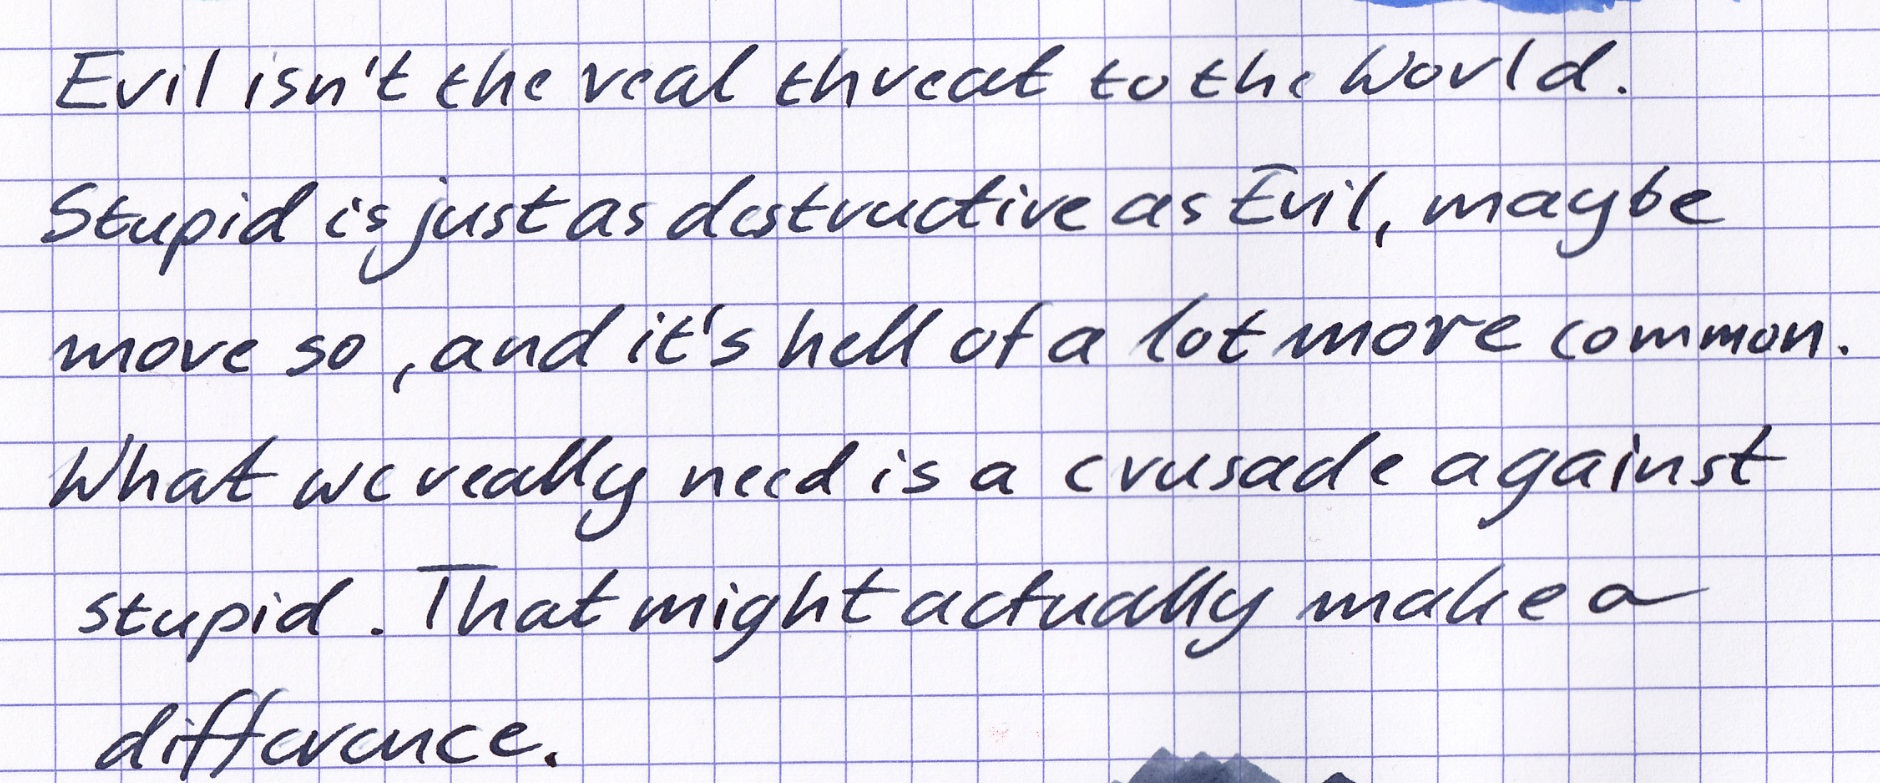 Evil isn't the real threat to the World.
Stupid is just as destructive as Evil, maybe
more so, and it's hell of a lot more common.
What we really need is a crusade against
stupid. That might actually make a
difference.